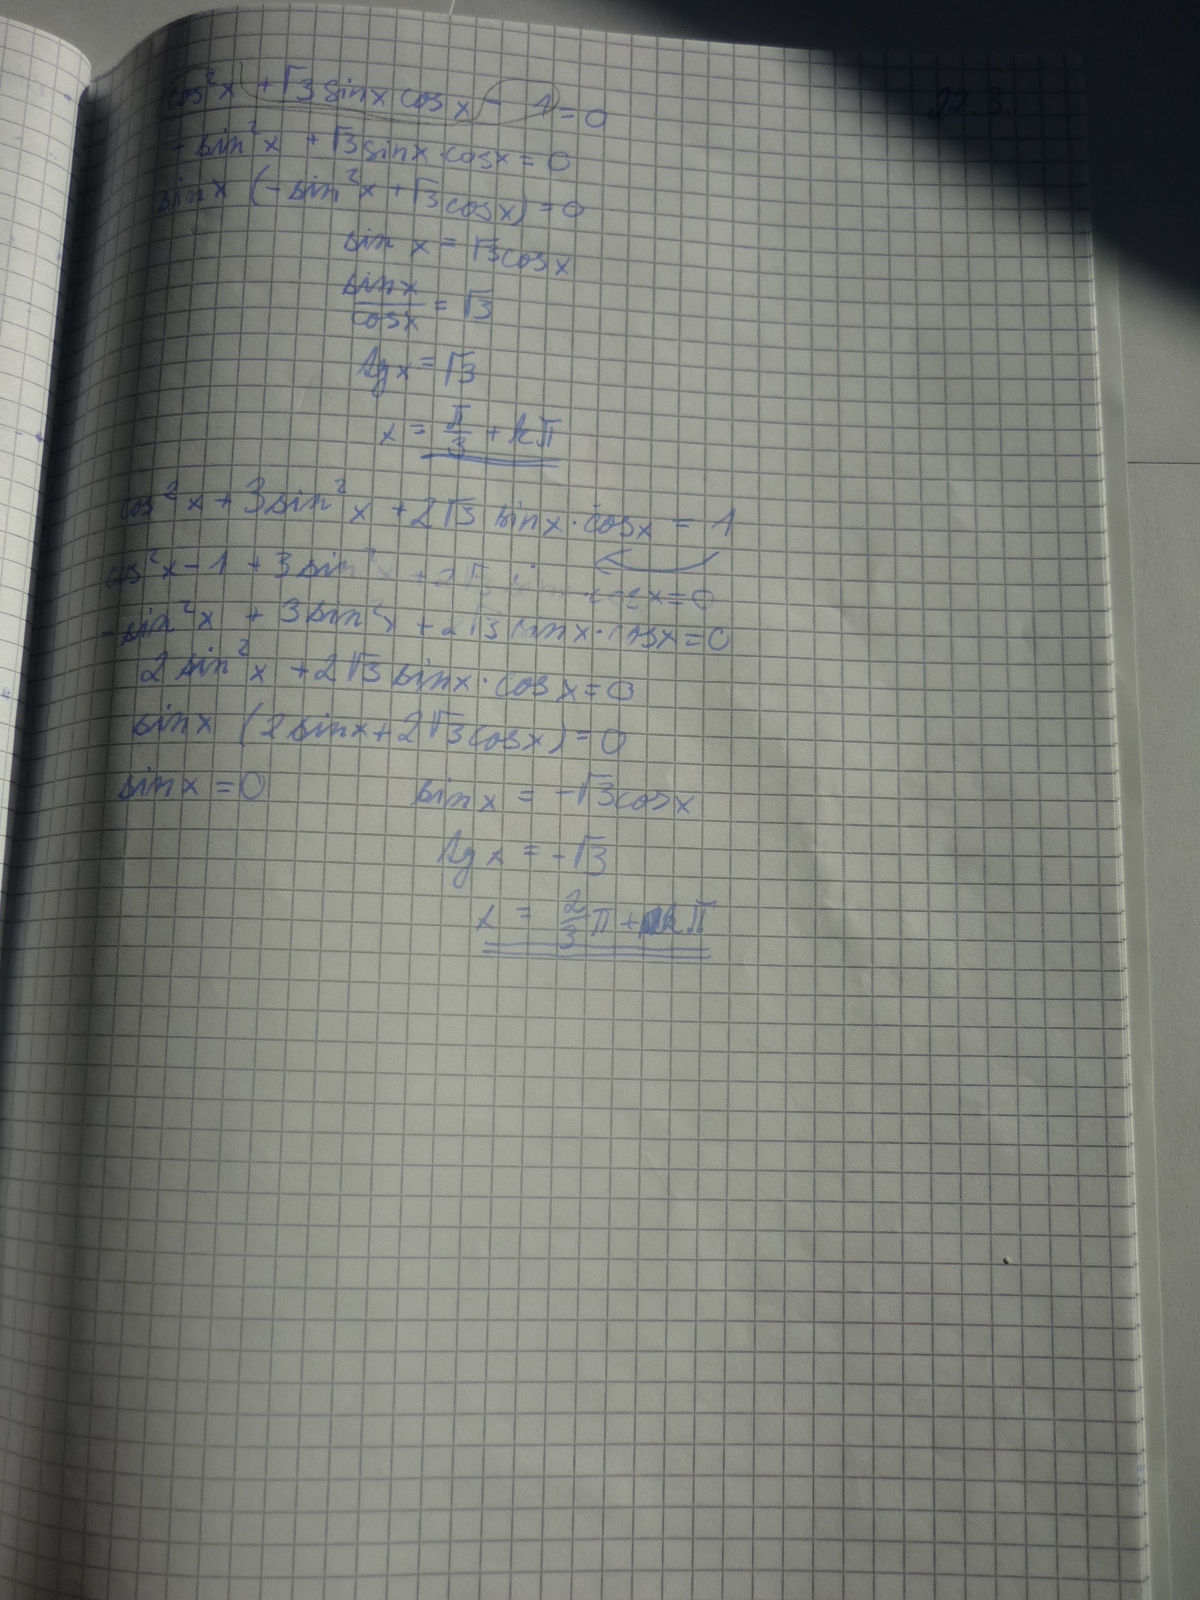 22.3.
cos²x + √3 sinx cosx - 1 = 0
- sin²x + √3 sinx · cosx = 0
sinx (- sin²x + √3 cosx) = 0
sin x = √3 cosx
sinx/cosx = √3
tgx = √3
x = π/3 + kπ
cos²x + 3sin²x + 2√3 sinx · cosx = 1
cos²x - 1 + 3sin²x + 2√3 sinx cosx = 0
- sin²x + 3sin²x + 2√3 sinx · cosx = 0
2 sin²x + 2√3 sinx · cosx = 0
sinx (2sinx + 2√3cosx) = 0
sinx = 0 sinx = -√3cosx
tgx = -√3
x = 2/3 π + kπ